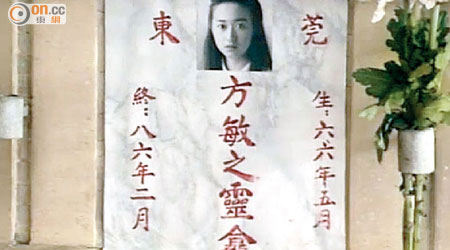 on.cc
東網
東莞
生:六六年五月
方敏之靈龕
終:八六年二月